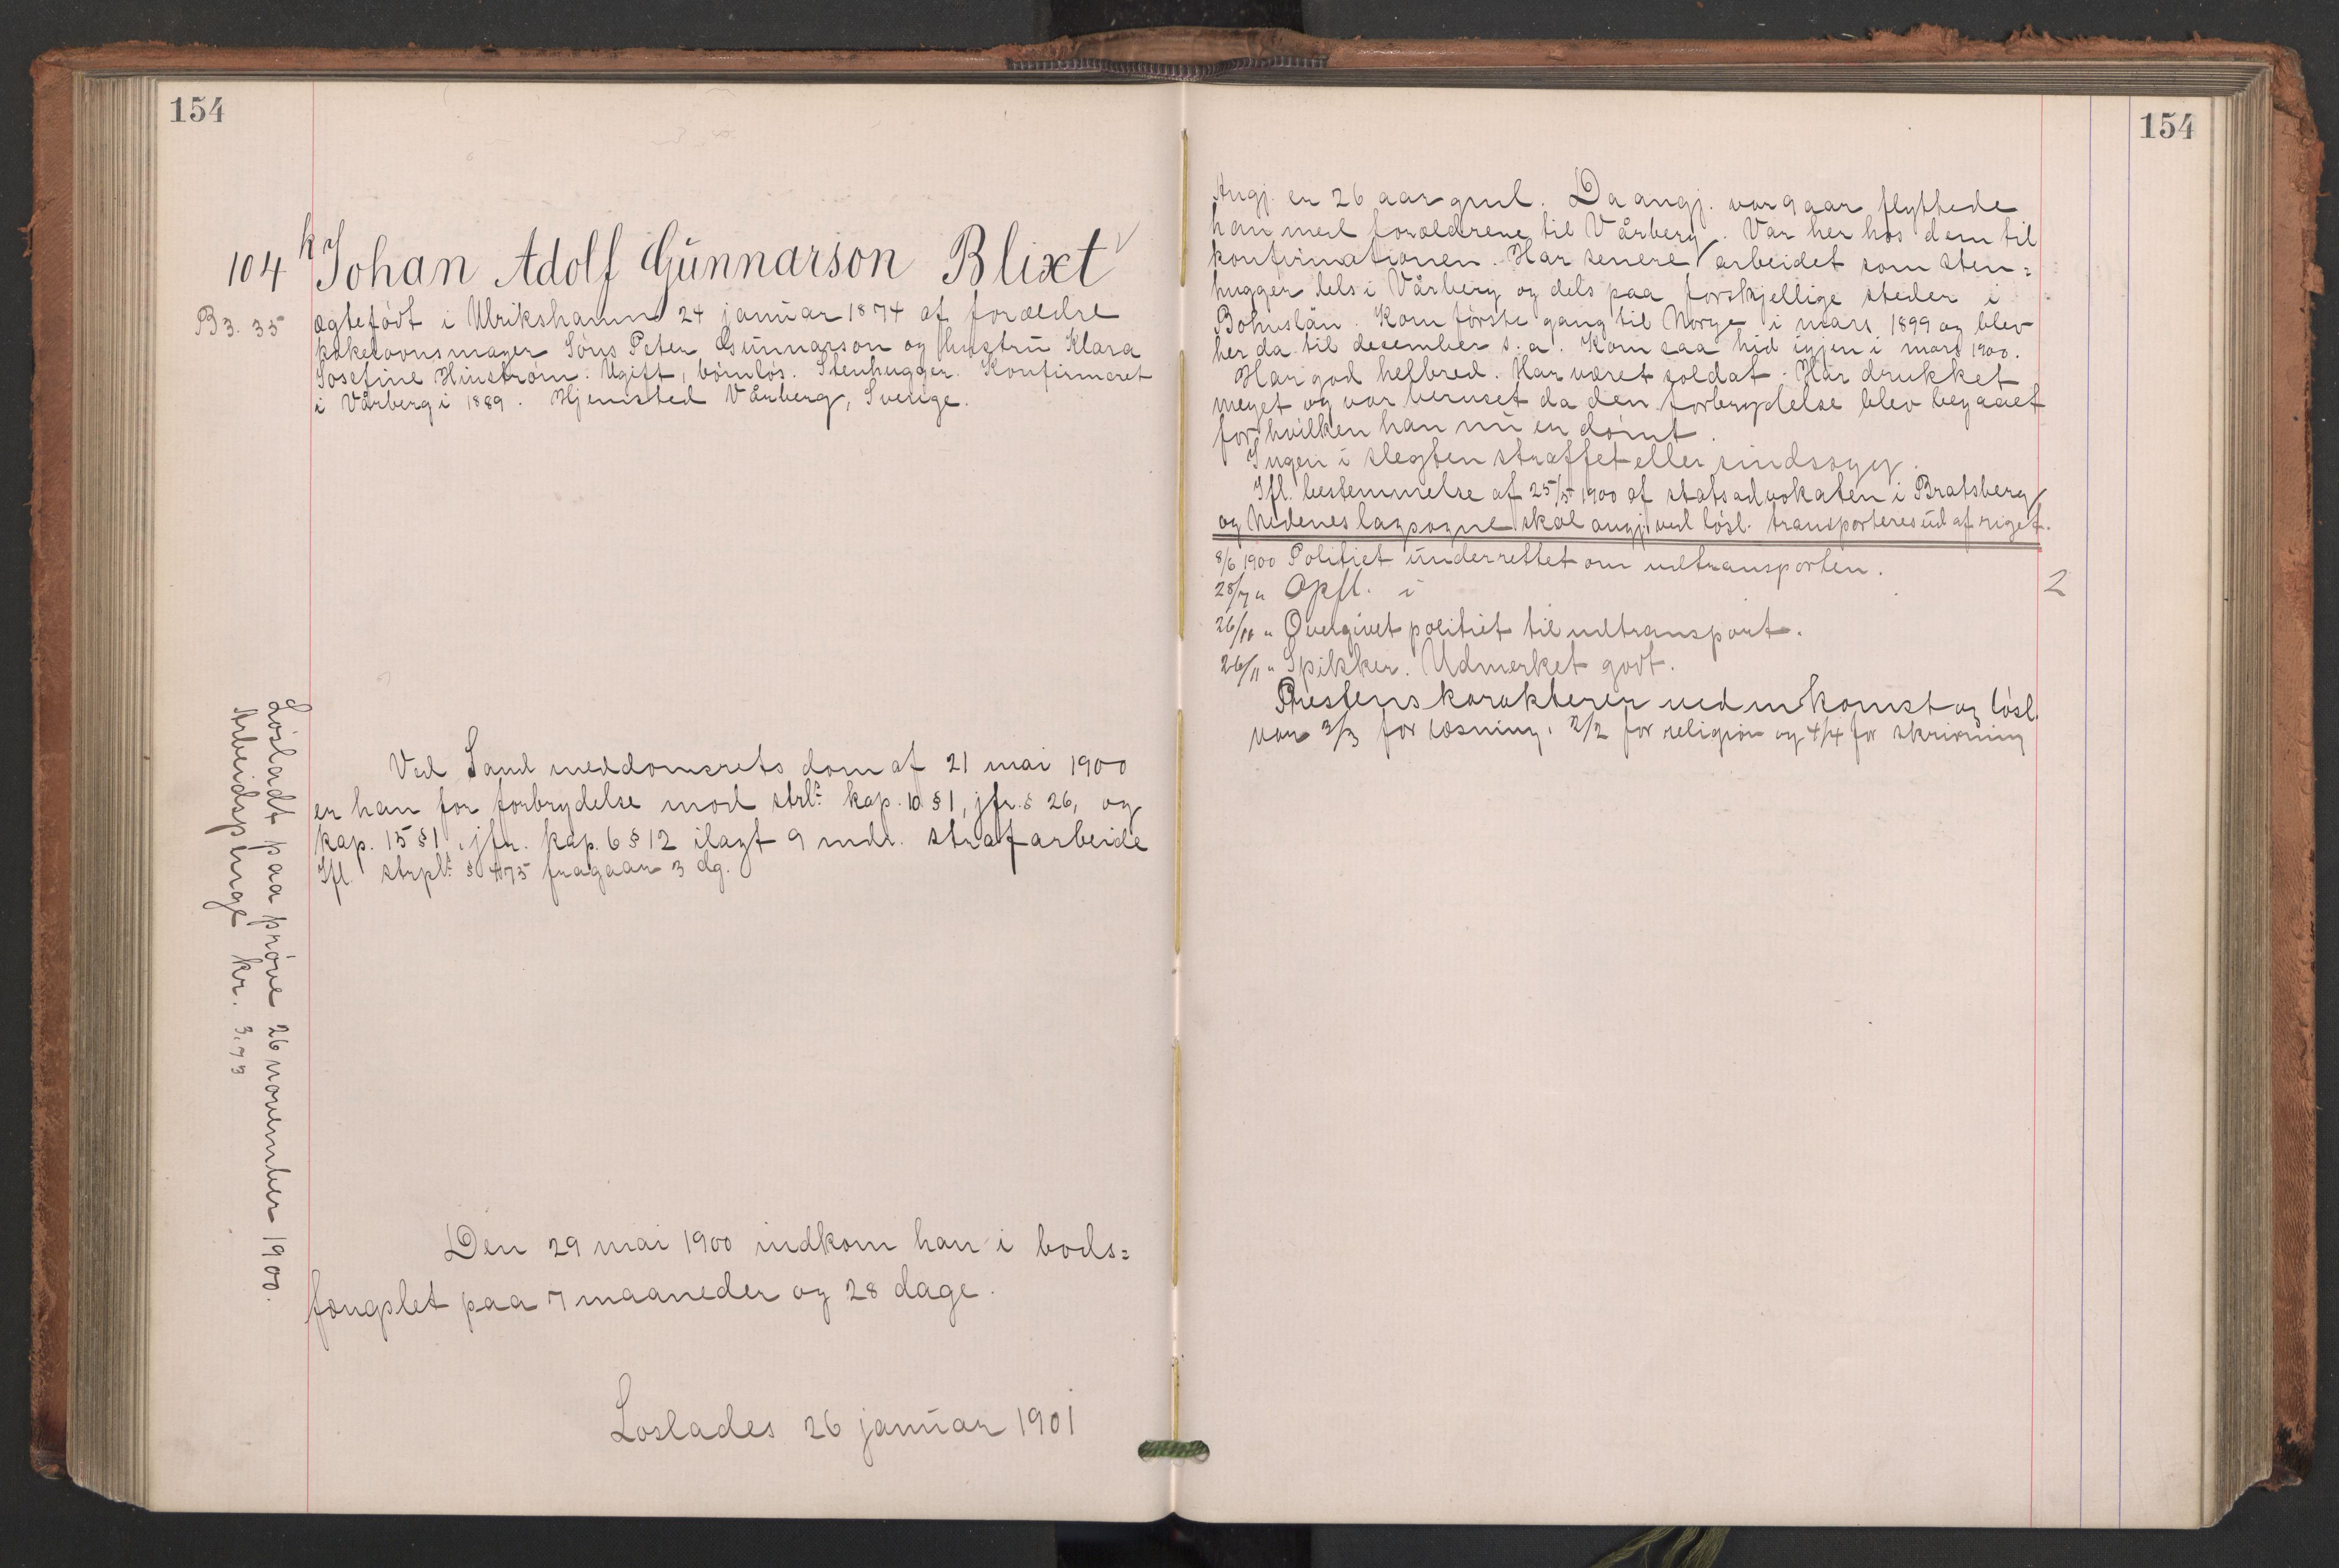 154
104 k Johan Adolf Gunnarson Blixt
B 3. 35 ægtefødt i Ulrikshamn 24 januar 1874 af forældre
kakelovnsmager Jöns Peter Gunnarson og hustru Klara
Josefine Hinström. Ugift, börnlös. Stenhugger. Konfirmeret
i Vårberg i 1889. Hjemsted Vårberg, Sverige.
Ved Sand meddomsrets dom af 21 mai 1900
er han for forbrydelse mod strl. kap. 10 § 1, jfr. § 26, og
kap. 15 § 1, jfr. kap. 6 § 12 ilagt 9 mdr. strafarbeide
Ifl. strpl. § 475 fragaar 3 dg.
Den 29 mai 1900 indkom han i bods=
fængslet paa 7 maaneder og 28 dage.
Loslades 26 januar 1901
Lösladt paa pröve 26 november 1900.
Arbeidspenge kr. 3.73
154
Angj. er 26 aar gml. Da angj. var 9 aar flyttede
han med forældrene til Vårberg. Var her hos dem til
konfirmationen. Har senere arbeidet som sten=
hugger dels i Vårberg og dels paa forskjellige steder i
Bohuslän. Kom förste gang til Norge i mars 1899 og blev
her da til desember s. a. Kom saa hid igjen i mars 1900.
Har god helbred. Har været soldat. Har drukket
meget og var beruset da den forbrydelse blev begaaet
for hvilken han nu er dömt.
Ingen i slegten straffet eller sindssyg.
Ifl. bestemmelse af 25/5 1900 af statsadvokaten i Bratsberg
og Nedenes lagsogne skal angj. ved lösl. transporteres ud af riget.
8/6 1900 Politiet underrettet om udtransporten.
28/7 " Opfl. i 2
26/11 " Overgivet politiet til udtransport.
26/11 " Spikker. Udmerket godt.
Prestens karakterer ved indkomst og lösl.
var 3/3 for læsning, 2/2 for religion og 4/4 for skrivning